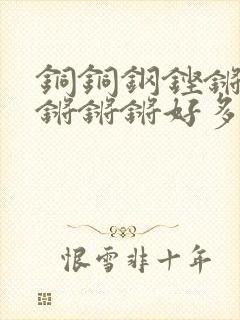 銅銅鋼鏗鏘
鏘鏘鏘好多
恨雪非十年